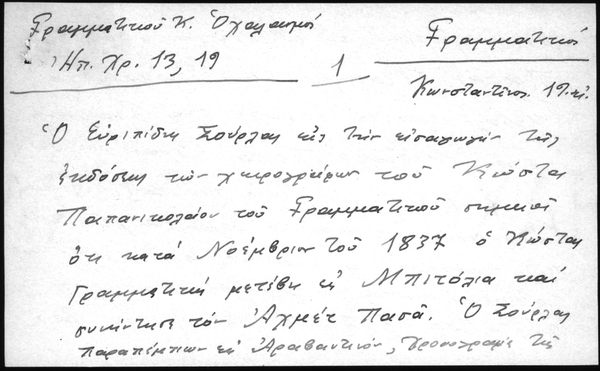 Γραμματικοῦ Κ. Ὁ χαλασμός
Ἠπ. Χρ. 13, 19
1
Γραμματικός
Κωνσταντῖνος 19. αἰ.
Ὁ Εὐριπίδης Σούρλας εἰς τὴν εἰσαγωγὴν τῆς
ἐκδόσεως τῶν χειρογράφων τοῦ Κώστα
Παπανικολάου τοῦ Γραμματικοῦ σημειοῖ
ὅτι κατὰ Νοέμβριον τοῦ 1837 ὁ Κώστας
Γραμματικὸς μετέβη εἰς Μπιτόλια καὶ
συνήντησε τὸν Ἀχμὲτ Πασᾶ. Ὁ Σούρλας
παραπέμπων εἰς Ἀραβαντινόν, χρονογραφία τῆς